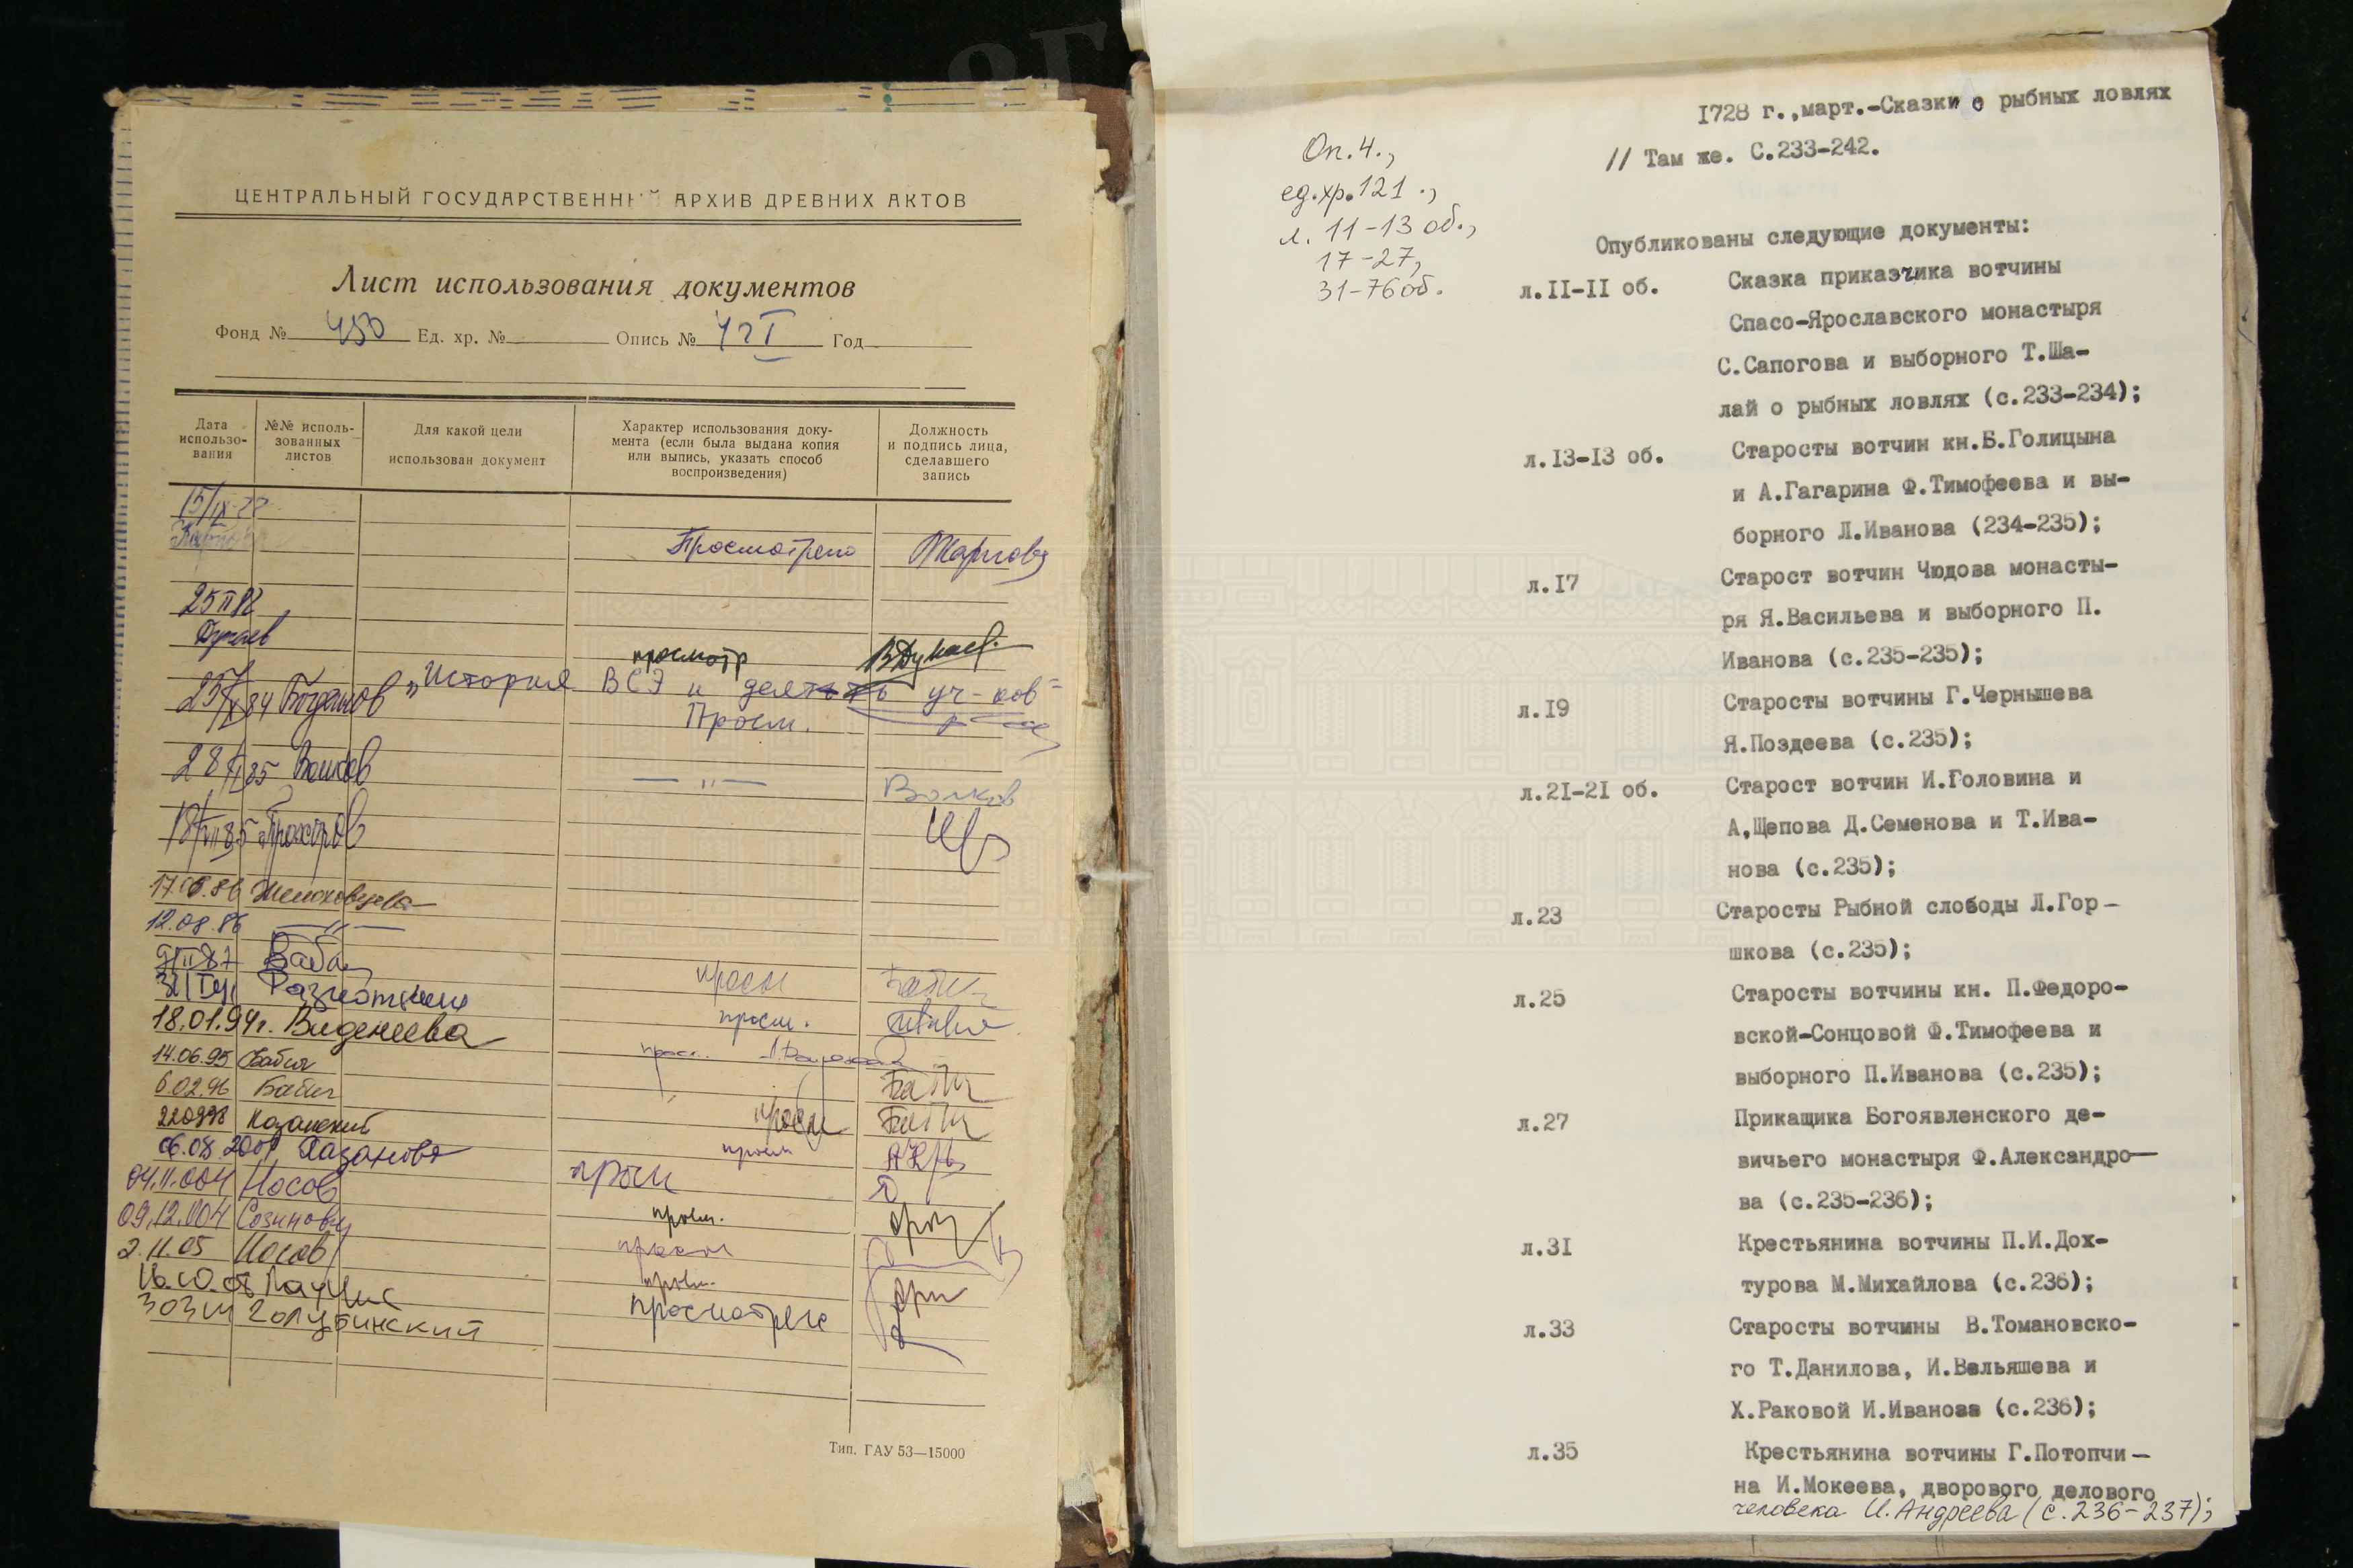 ЦЕНТРАЛЬНЫЙ ГОСУДАРСТВЕННЫЙ АРХИВ ДРЕВНИХ АКТОВ
Лист использования документов
Фонд № 450 Ед. хр. № Опись № Год
Дата использо-вания
№№ исполь-зованных листов
Для какой цели использован документ
Характер использования доку-мента (если была выдана копия или выпись, указать способ воспроизведения)
Должность и подпись лица, сделавшего запись
Просмотрено
просмотр
"История ВСЭ и уч-ков"
Просм.
Волков
— " —
Волков
Прохоров
17.06.86
12.08.86 — " —
просм
18.01.94г. Виденеева просм.
14.06.95 Бабич
6.02.96 Бабич
220998 Казанский просм
06.08.2001 Казанова просм
04.11.004 Носов просм
09.12.004 просм.
2.11.05 Носов просм
просм.
Голубинский просмотрено
Тип. ГАУ 53—15000
1728 г.,март.-Сказки о рыбных ловлях
// Там же. С.233-242.
Оп.4.,
ед.хр.121.,
л. 11-13 об.,
17-27,
31-76об.
Опубликованы следующие документы:
л.II-II об. Сказка приказчика вотчины
Спасо-Ярославского монастыря
С.Сапогова и выборного Т.Ша-
лай о рыбных ловлях (с.233-234);
л.I3-I3 об. Старосты вотчин кн.Б.Голицына
и А.Гагарина Ф.Тимофеева и вы-
борного Л.Иванова (234-235);
л.I7 Старост вотчин Чюдова монасты-
ря Я.Васильева и выборного П.
Иванова (с.235-235);
л.I9 Старосты вотчины Г.Чернышева
Я.Поздеева (с.235);
л.2I-2I об. Старост вотчин И.Головина и
А,Щепова Д.Семенова и Т.Ива-
нова (с.235);
л.23 Старосты Рыбной слободы Л.Гор-
шкова (с.235);
л.25 Старосты вотчины кн. П.Федоро-
вской-Сонцовой Ф.Тимофеева и
выборного П.Иванова (с.235);
л.27 Прикащика Богоявленского де-
вичьего монастыря Ф.Александро-
ва (с.235-236);
л.3I Крестьянина вотчины П.И.Дох-
турова М.Михайлова (с.236);
л.33 Старосты вотчины В.Томановско-
го Т.Данилова, И.Вельяшева и
Х.Раковой И.Иванова (с.236);
л.35 Крестьянина вотчины Г.Потопчи-
на И.Мокеева, дворового делового
человека И.Андреева (с.236-237);